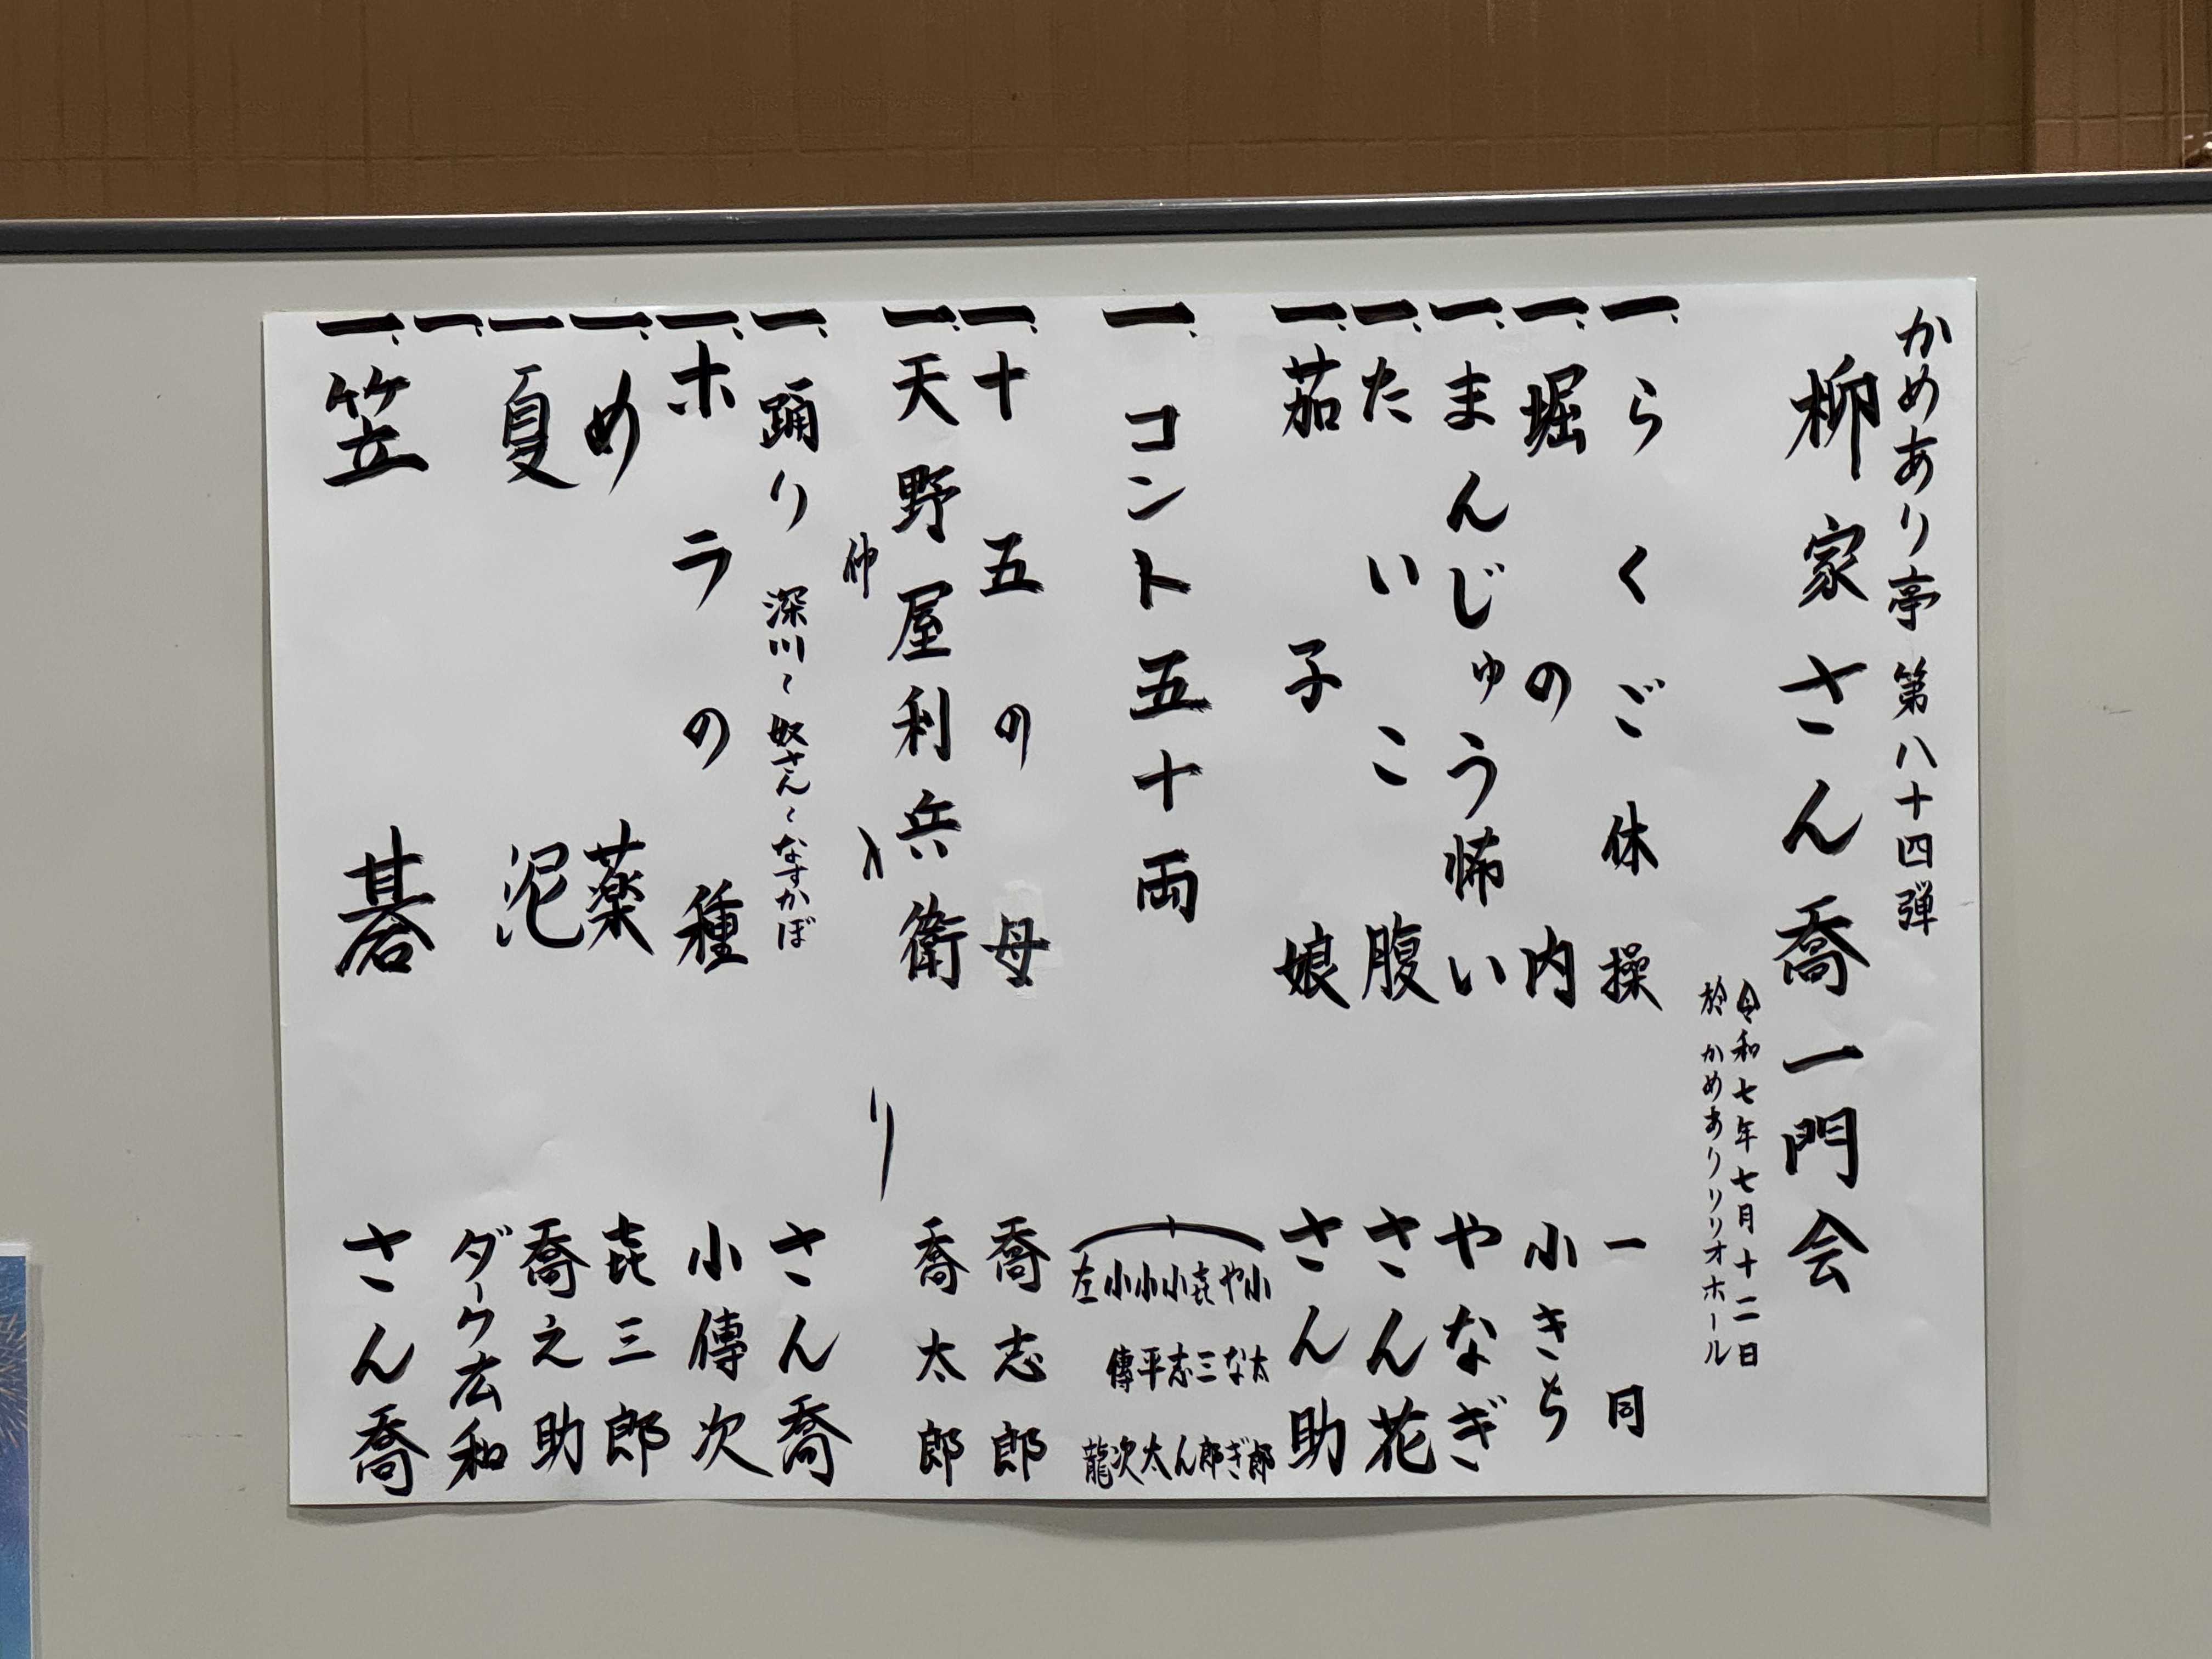 かめあり亭 第八十四弾
柳家さん喬一門会
令和七年七月十二日
於 かめありリリオホール
一、らくご体操 一同
一、堀の内 小きち
一、まんじゅう怖い やなぎ
一、たいこ腹 さん花
一、茄子娘 さん助
一、コント五十両 小太郎 やなぎ 㐂三郎 小志ん 小平太 小傳次 左龍
一、十五の母 喬志郎
一、天野屋利兵衛 喬太郎
仲入り
一、踊り 深川〜奴さん〜なすかぼ さん喬
一、ホラの種 小傳次
一、め薬 㐂三郎
一、夏泥 喬之助
一、 ダーク広和
一、笠碁 さん喬